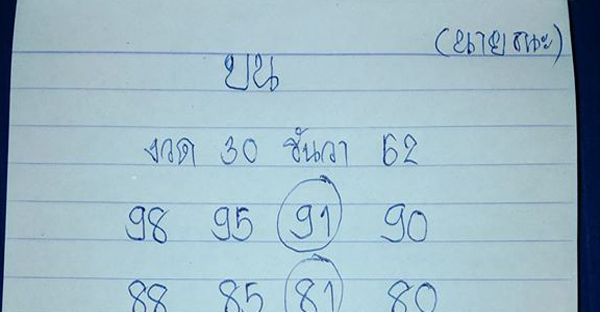 (นายชนะ)
บน
งวด 30 ธันวา 62
98 95 91 90
88 85 81 80